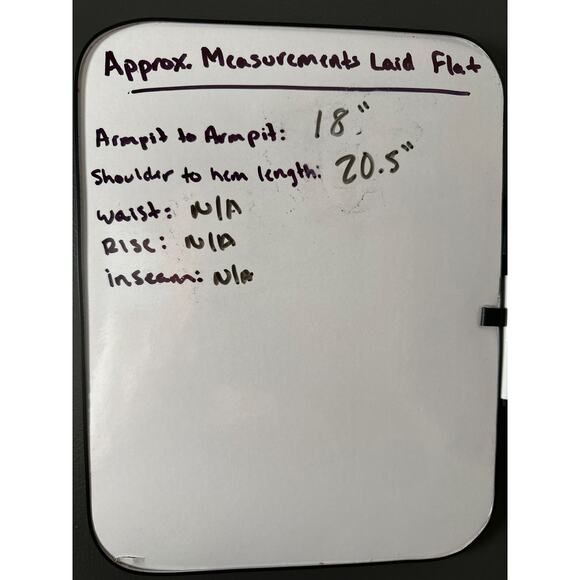 Approx. Measurements Laid Flat
Armpit to Armpit: 18"
Shoulder to hem length: 20.5"
waist: N/A
Rise: N/A
inseam: N/A